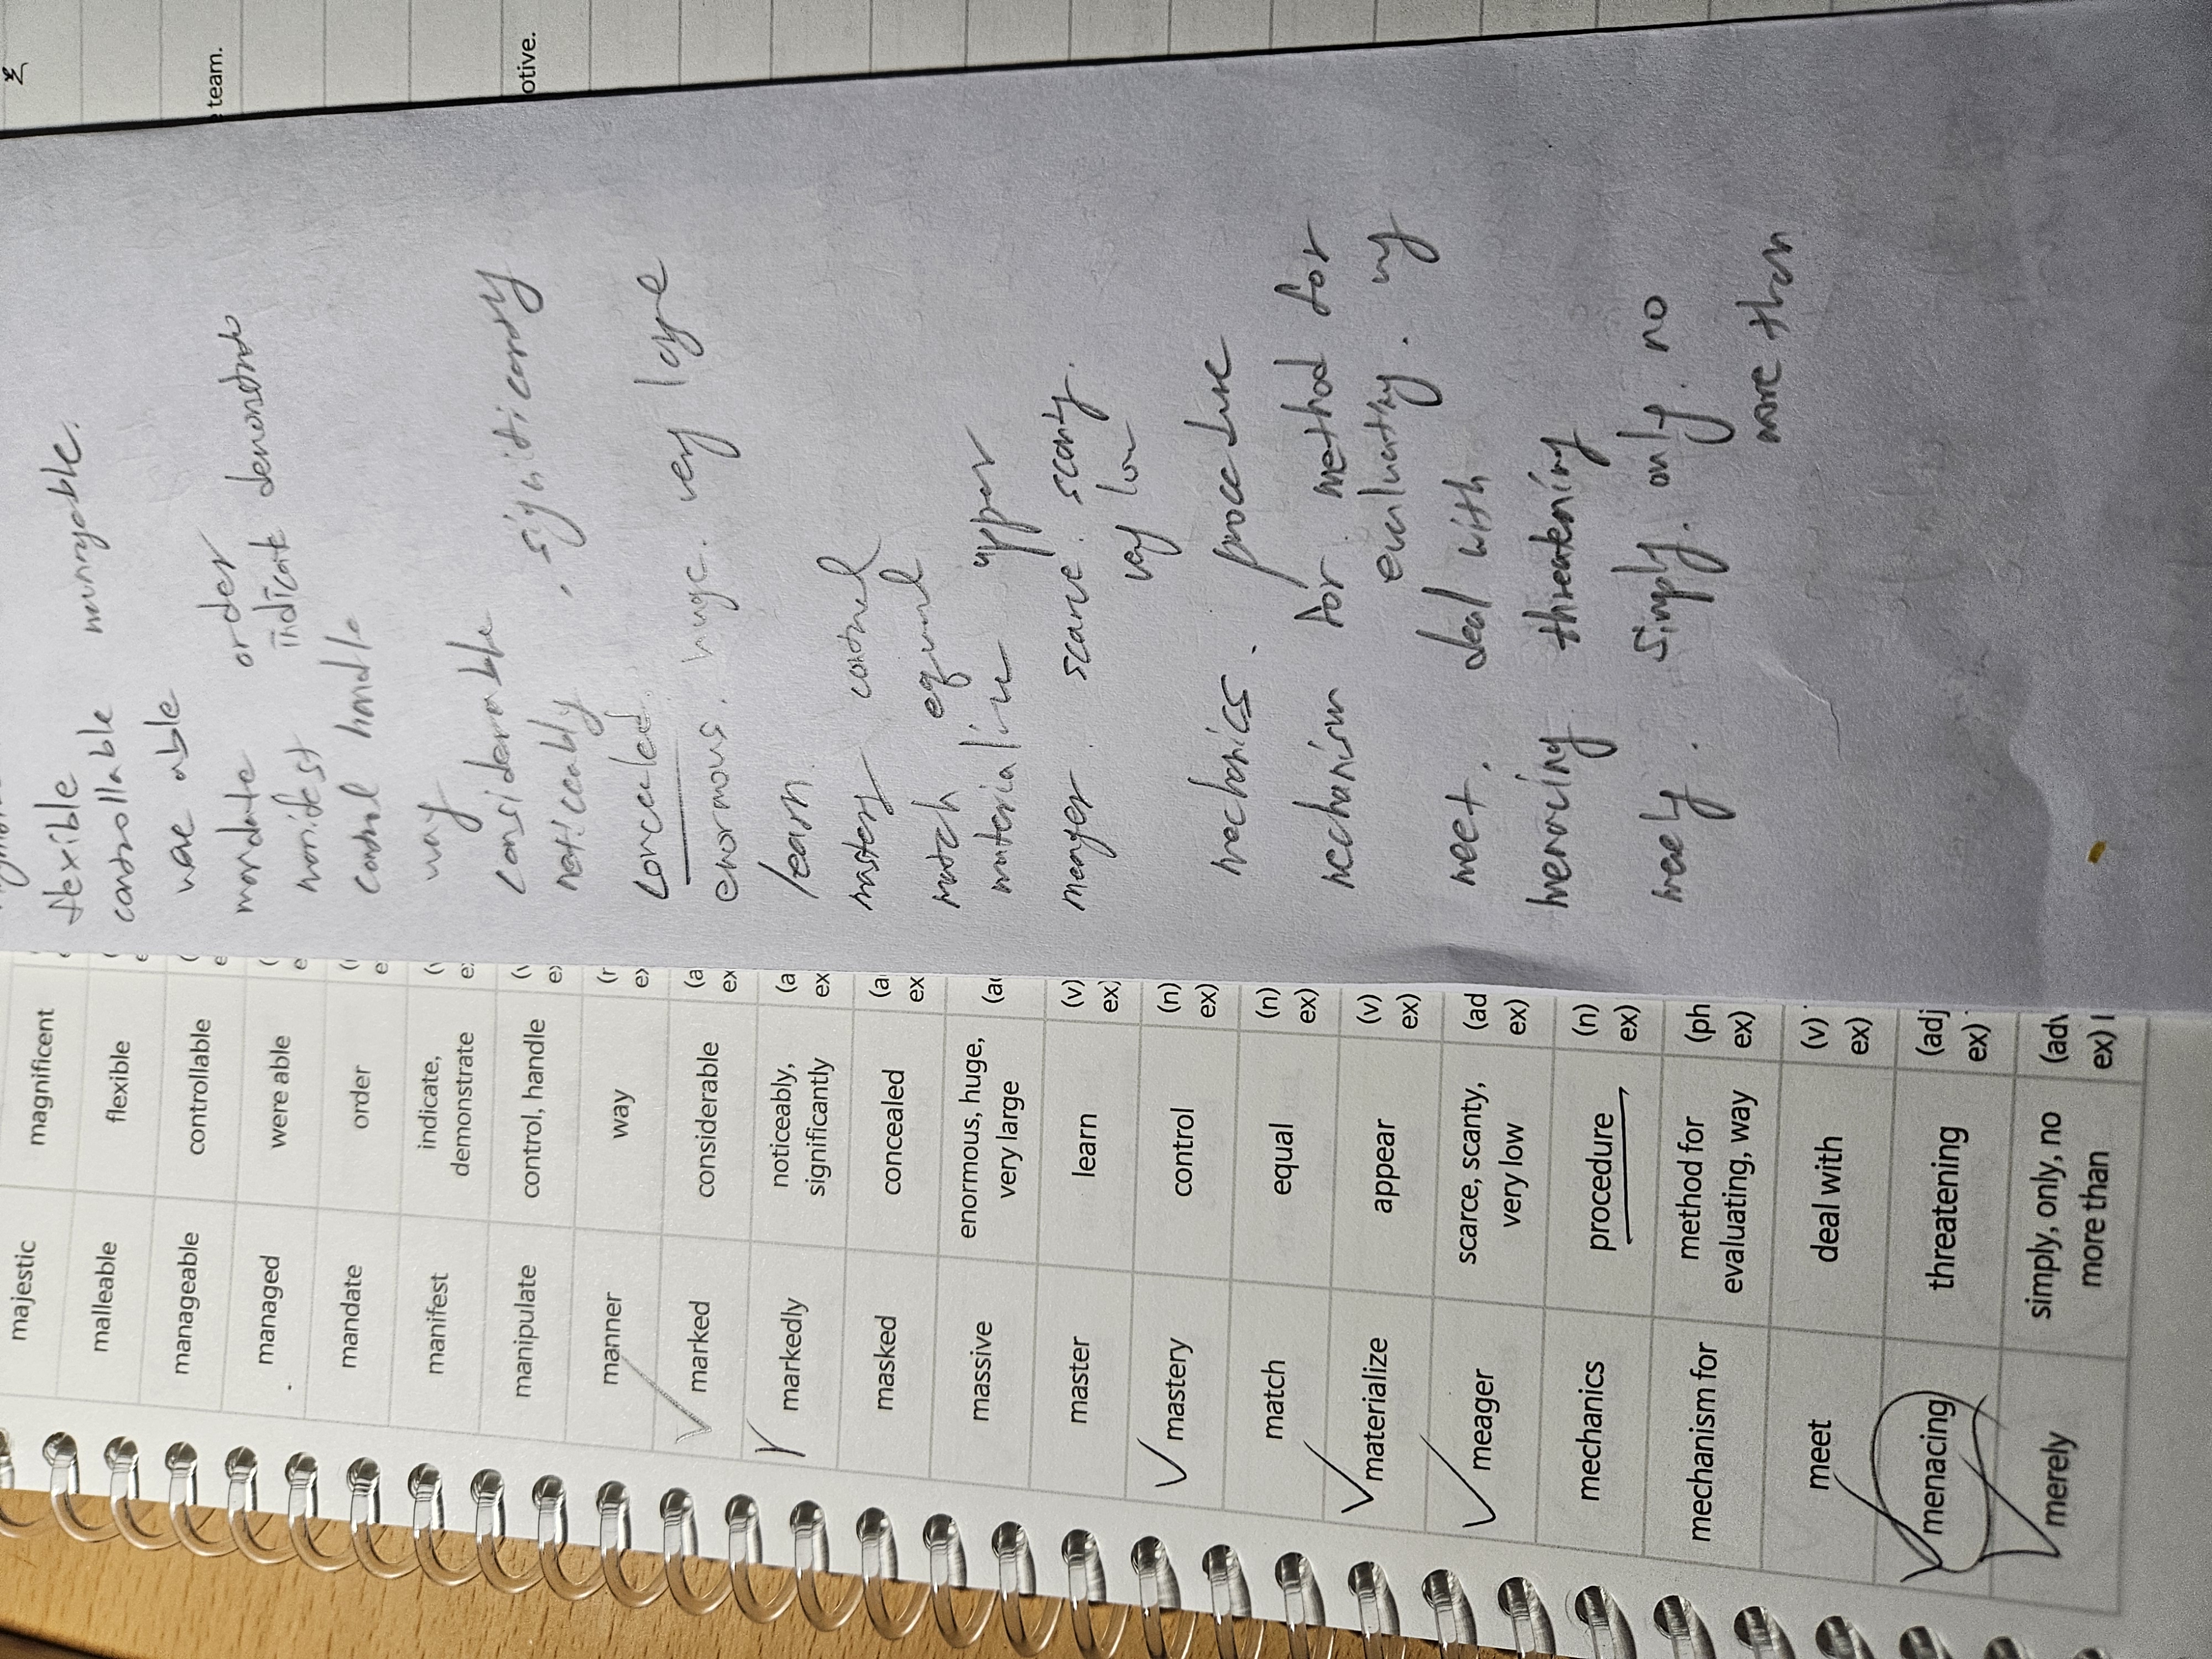 team.
otive.
majestic magnificent
malleable flexible
manageable controllable
managed were able
mandate order
manifest indicate,
demonstrate
manipulate control, handle
manner way
marked considerable (a
ex
markedly noticeably, (a
significantly ex
masked concealed (a
ex
massive enormous, huge,
very large
master learn (v)
ex)
mastery control (n)
ex)
match equal (n)
ex)
materialize appear (v)
ex)
meager scarce, scanty, (ad
very low ex)
mechanics procedure (n)
ex)
mechanism for method for (ph
evaluating, way ex)
meet deal with (v)
ex)
menacing threatening (adj
ex)
merely simply, only, no (adv
more than ex)
flexible
controllable
able
mandate order
manifest indicate demonstrate
control handle
way
considerable
noticeably, significantly
concealed
enormous. huge. very large
learn
mastery control
match equal
materialize appear
meager. scarce. scanty.
very low
mechanics. procedure
mechanism for. method for
evaluating.
meet. deal with
menacing threatening
simply. only. no
more than